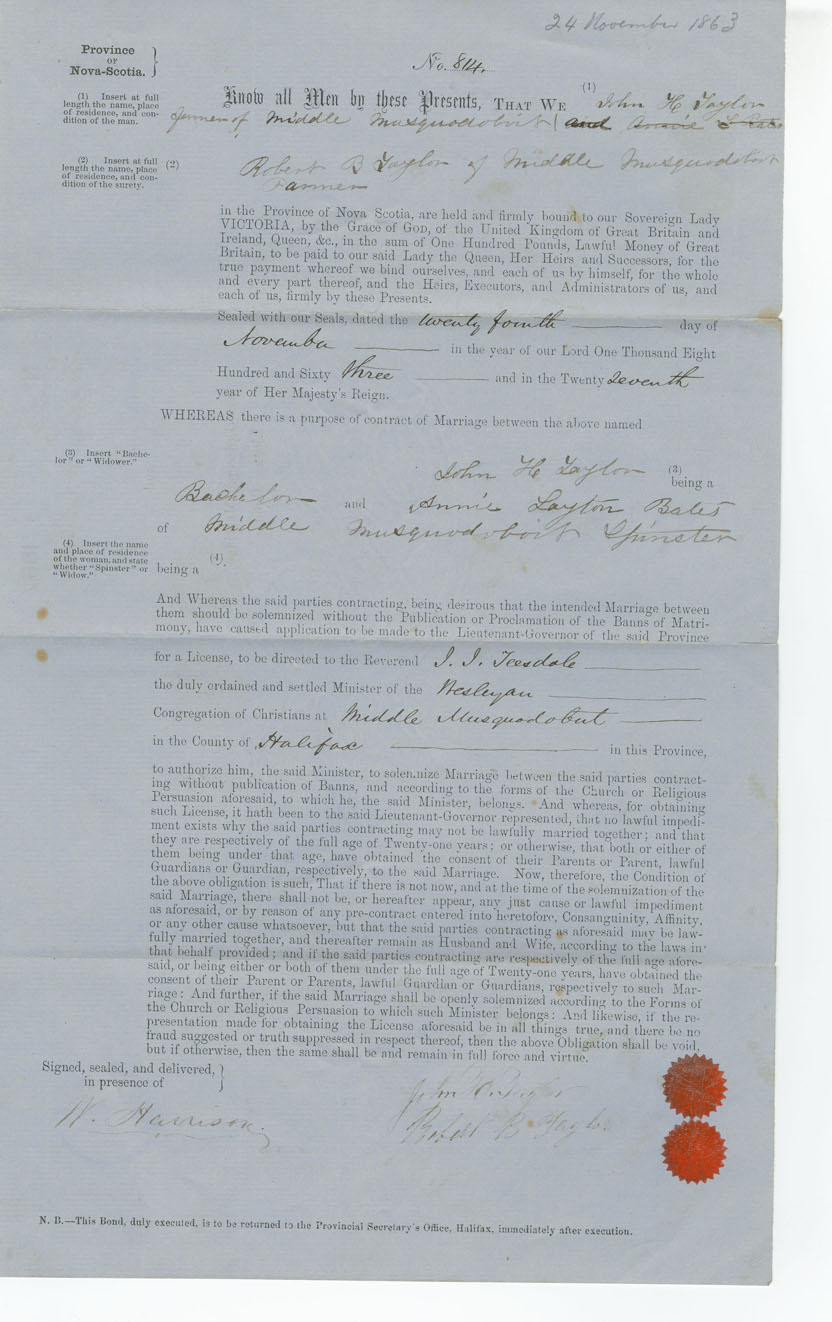 24 November 1863
Province
OF
Nova-Scotia.
No. 814.
(1) Insert at full
length the name, place
of residence, and con-
dition of the man.
Know all Men by these Presents, THAT WE (1) John H Taylor
farmer of Middle Musquodoboit and Annie L Bates
(2) Insert at full
length the name, place
of residence, and con-
dition of the surety.
(2) Robert B Taylor of Middle Musquodoboit
Farmer
in the Province of Nova Scotia, are held and firmly bound to our Sovereign Lady
VICTORIA, by the Grace of GOD, of the United Kingdom of Great Britain and
Ireland, Queen, &c., in the sum of One Hundred Pounds, Lawful Money of Great
Britain, to be paid to our said Lady the Queen, Her Heirs and Successors, for the
true payment whereof we bind ourselves, and each of us by himself, for the whole
and every part thereof, and the Heirs, Executors, and Administrators of us, and
each of us, firmly by these Presents.
Sealed with our Seals, dated the twenty fourth day of
Novembe in the year of our Lord One Thousand Eight
Hundred and Sixty three and in the Twenty Seventh
year of Her Majesty's Reign.
WHEREAS there is a purpose of contract of Marriage between the above named
(3) Insert "Bache-
lor" or "Widower."
John H Taylor (3) being a
Bachelor and Annie Layton Bates
of Middle Musquodoboit Spinster
(4) Insert the name
and place of residence
of the woman, and state
whether "Spinster" or
"Widow."
being a (4).
And Whereas the said parties contracting, being desirous that the intended Marriage between
them should be solemnized without the Publication or Proclamation of the Banns of Matri-
mony, have caused application to be made to the Lieutenant-Governor of the said Province
for a License, to be directed to the Reverend J. J. Teesdale
the duly ordained and settled Minister of the Wesleyan
Congregation of Christians at Middle Musquodobut
in the County of Halifax in this Province,
to authorize him, the said Minister, to solemnize Marriage between the said parties contract-
ing without publication of Banns, and according to the forms of the Church or Religious
Persuasion aforesaid, to which he, the said Minister, belongs. And whereas, for obtaining
such License, it hath been to the said Lieutenant-Governor represented, that no lawful impedi-
ment exists why the said parties contracting may not be lawfully married together; and that
they are respectively of the full age of Twenty-one years; or otherwise, that both or either of
them being under that age, have obtained the consent of their Parents or Parent, lawful
Guardians or Guardian, respectively, to the said Marriage. Now, therefore, the Condition of
the above obligation is such, That if there is not now, and at the time of the solemnization of the
said Marriage, there shall not be, or hereafter appear, any just cause or lawful impediment
as aforesaid, or by reason of any pre-contract entered into heretofore, Consanguinity, Affinity,
or any other cause whatsoever, but that the said parties contracting as aforesaid may be law-
fully married together, and thereafter remain as Husband and Wife, according to the laws in
that behalf provided; and if the said parties contracting are respectively of the full age afore-
said, or being either or both of them under the full age of Twenty-one years, have obtained the
consent of their Parent or Parents, lawful Guardian or Guardians, respectively to such Mar-
riage: And further, if the said Marriage shall be openly solemnized according to the Forms of
the Church or Religious Persuasion to which such Minister belongs: And likewise, if the re-
presentation made for obtaining the License aforesaid be in all things true, and there be no
fraud suggested or truth suppressed in respect thereof, then the above Obligation shall be void,
but if otherwise, then the same shall be and remain in full force and virtue.
Signed, sealed, and delivered,
in presence of
John H Taylor
W. Harrison.
Robert B Taylor
N. B.—This Bond, duly executed, is to be returned to the Provincial Secretary's Office, Halifax, immediately after execution.